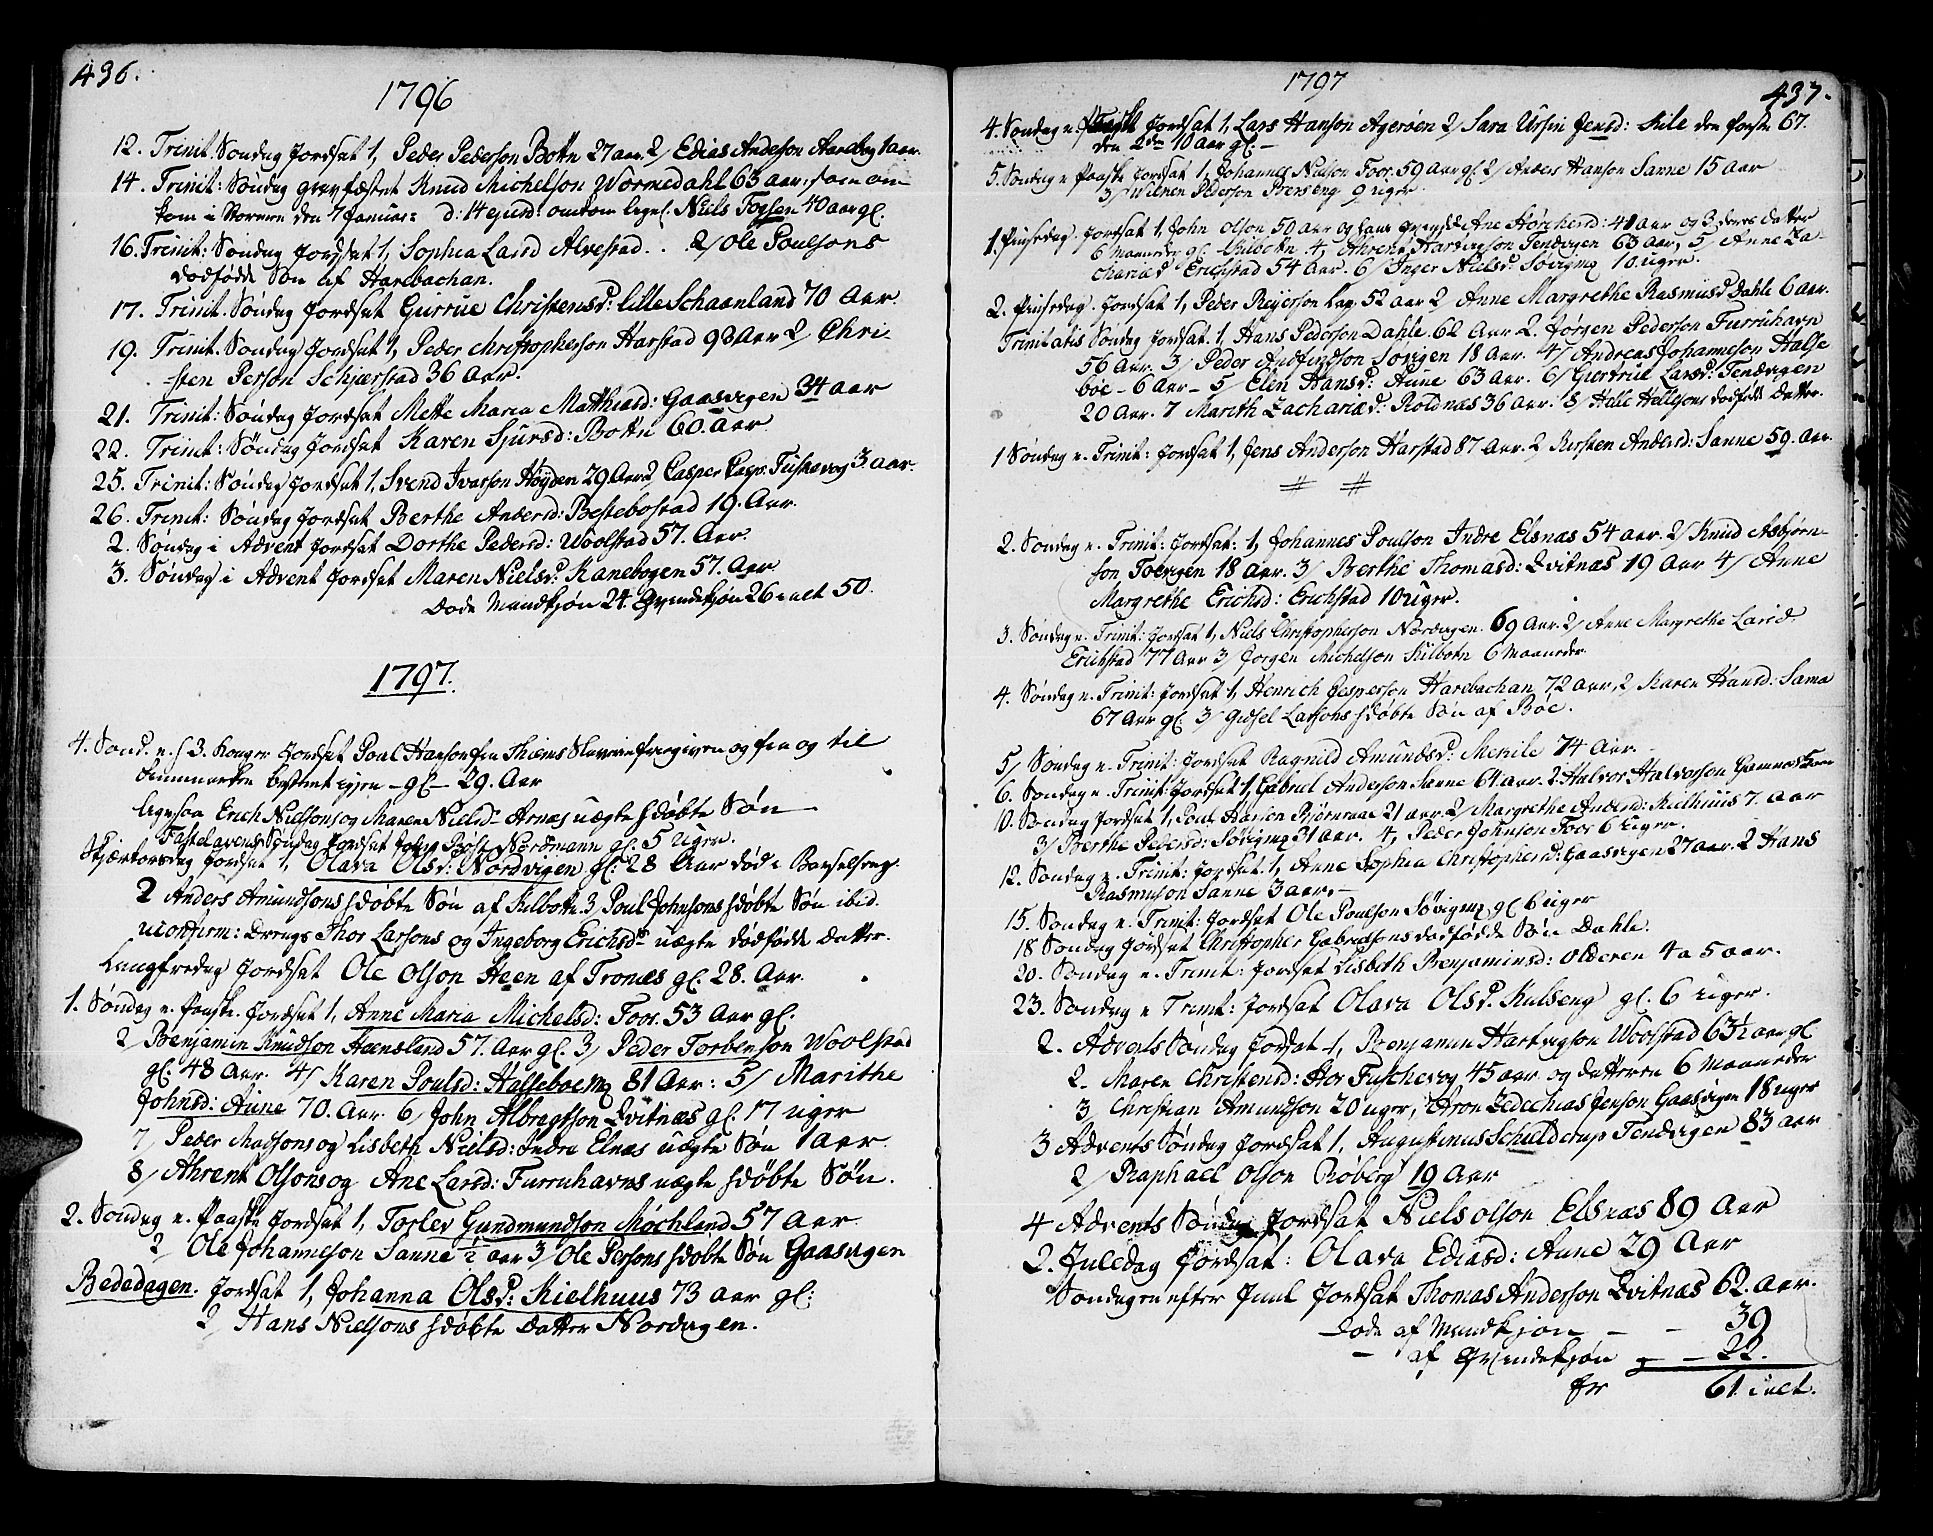 436.
1796
12. Trinit. Søndag Jordsat 1, Peder Pederson Bottn 27 aar. 2/ Edias Andeson Aarebog 1 aar.
14. Trinit: Søndag gravfæstet Knud Michelson Wormedahl 63 aar, som om-
kom i Stormen den 7 Januar: d: 14 ejusd: omkom ligel. Niels Togsen 40 aar gl.
16. Trinit: Søndag Jordsat 1, Sophia Larsd Alvestad. 2/ Ole Poulsons
dødfødde Søn af Harebachan.
17. Trinit. Søndag Jordsat Gurrue Christensd: lille Schaanland 70 Aar.
19. Trinit. Søndag Jordsat 1, Peder Christopherson Harstad 93 Aar 2/ Chri-
-sten Person Schjærstad 36 Aar.
21. Trinit: Søndag Jordsat Mette Maria Matthiasd: Gaasvigen 34 aar
22. Trinit: Søndag Jordsat Karen Sjursd: Bottn 60. Aar
25. Trinit: Søndag Jordsat 1, Svend Ivarson Høgden 29 Aar 2, Casper Casp: Fuskevog 3. aar.
26. Trinit: Søndag Jordsat Berthe Andersd: Bestebostad 19. Aar.
2. Søndag i Advent Jordsat Dorthe Pedersd: Woolstad 57. Aar.
3. Søndag i Advent Jordsat Maren Nielsd: Kanebogen 57. Aar
Døde Mandkjøn 24. Qvindekjøn 26 i alt 50.
1797.
4. Sønd. e. h 3. Konger Jordsat Poul Hanson fra Thiems Slaverie frigiven og fra og til
Finmarken bestemt igjen – gl – 29. Aar
ligesaa Erich Nielsons og Maren Nielsd: Arnæs uægte hdøbte Søn
Fastelavens Søndag Jordsat John Bøse Nordmann gl. 5 Uger.
Skjærtorsdag Jordsat 1, Olava Olsd: Nordvigen gl: 28 Aar død i Barselseng.
2 Anders Amundsons hdøbte Søn af Kilbottn 3, Poul Johnsons hdøbte Søn ibid.
uconfirm: Drengs Thor Larsons og Ingeborg Erichsd: uægte dødfødde Datter.
Langfredag Jordsat Ole Olson Steen af Tronæs gl. 28. Aar.
1. Søndag e. Paaske. Jordsat 1, Anne Maria Michelsd: Foor. 53 Aar gl.
2/ Benjamin Knudson Heensland 57. Aar gl. 3/ Peder Torbenson Woolstad
gl. 48 Aar. 4/ Karen Poulsd: Halseboe 81 Aar: 5/ Marithe
Johnsd: Aune 70. Aar 6/ John Albregtson Qvitnæs gl. 17 uger
7/ Peder Madsons og Lisbeth Nielsd: Indre Elnæs uægte Søn 1 aar.
8/ Ahrent Olsons og Ane Larsd: Furruhavns uægte hdøbte Søn.
2. Søndag e. Paaske Jordsat 1, Torlev Gundmundson Møchland 57 Aar
2/ Ole Johanneson Sanne aar 3/ Ole Persons hdøbte Søn Gaasvigen
Bededagen. Jordsat 1, Johanna Olsd: Kielhuus 73 aar gl:
2/ Hans Nielsons hdøbte Datter Nordvigen.
437.
1797
4. Søndag e. Jordsat 1, Lars Hanson Agerøen 2/ Sara Ursin Jensd: Kile den første 67.
den 2den 10 aar gl. –
5. Søndag e Paaske Jordsat 1, Johannes Nielson Foor 59 Aar gl. 2/ Anders Hanson Sanne 15 Aar
3/ Wilnen Pederson Brenseng 9 uger
1. Pinsedag. Jordsat 1, John Olson 50 aar og hans Ane 41 Aar og 3 deres datter
6 maaneder gl. 4, Ahrent Hartvigson Tendvigen 63 aar, 5/ Anne Za-
chariæd Erichstad 54 Aar. 6/ Inger Nielsd: Søvigmz 10 Uger.
2. Pinsedag. Jordsat 1, Peder Reyerson 52 aar 2/ Anne Margrethe Rasmusd Dahle 6 aar.
Trinitatis Søndag Jordsat. 1, Hans Pederson Dahle. 62 Aar 2. Jørgen Pederson Furruhavn
56 Aar. 3/ Peder Andfindson Søvigen 18 Aar. 4/ Andreas Johanneson Halse
boe – 6 Aar – 5/ Elen Hansd: Aune 63 Aar. 6/ Giertrue Larsd: Tendvigen
20 Aar. 7 Marith Zachariæd: Roldnæs 36 Aar. 8/ Helle Hellesons dødfødde Datter.
1 Søndag e. Trinit: Jordsat 1, Jens Anderson Harstad 87 Aar. 2 Kirsten Andersd: Sanne 59. Aar.
# #
2. Søndag e. Trinit: Jordsat. 1, Johannes Poulson Indre Elsnæs 54 aar. 2/ Knud Asbjørn-
son Toevigen 18 aar. 3/ Berthe Thomasd: Qvitnæs 19 Aar 4/ Anne
Margrethe Erichsd: Erichstad 10 Uger.
3. Søndag e. Trinit: Jordsat 1, Niels Christopherson Nordvigen. 69 Aar. 2/ Anne Margrethe Larsd.
Erichstad 77 Aar 3/ Jørgen Michelson Kilbotn 6 Maaneder.
4. Søndag e. Trinit: Jordsat 1, Henrich Jesperson Harebachan 72 Aar, 2 Karen Hansd: Sama
67 Aar gl. 3/ Gidsel Larsons hdøbte Søn af Bøe.
5/ Søndag e. Trinit: Jordsat Ragnild Amundsd: Merkile 74 Aar.
6. Søndag e. Trinit: Jordsat 1, Gabriel Anderson Sanne 61 aar. 2 Halvor Halvorson
10. Søndag Jordsat 1, Poul Hanson Bjørneraae 21 aar. 2/ Margrethe Andersd: Kielhuus 7. Aar
3/ Berthe Pedersd: Søvigmz 31 aar. 4, Peder Johnson Foor 6 Uger.
12. Søndag e. Trinit: Jordsat 1, Anne Sophia Christophersd: Gaasvigen 27 aar. 2 Hans
Rasmuson Sanne 3 aar. –
15. Søndag e. Trinit: Jordsat Ole Poulson Søvigmz gl 6 uger
18 Søndag Jordsat Christopher Gabrielsons dødfødde Søn Dahle.
20. Søndag e. Trinit: Jordsat Lisbeth Benjaminsd: Olderen 4 a 5 aar.
23. Søndag e Trinit: Jordsat Olava Olsd. Kulseng gl. 6 uger.
2. Advents Søndag Jordsat 1, Benjamin Hartvigson Woolstad 63½ aar gl
2. Maren Christensd: Hos Fuschevog 45 aar og datteren 6 Maaneder
3/ Christian Amundson 20 uger, Aron Zedechias Jenson Gaasvigen 18 uger
3 Advents Søndag Jordsat 1, Augustinus Schielderup Tendvigen 83 aar
2/ Raphael Olson Røberg 19 Aar
4 Advents Søndag Jordsat Niels Olson Elsnæs 89 Aar
2. Juledag Jordsat: Olava Ediasd: Aune 29 Aar
Søndagen efter Juul Jordsat Thomas Anderson Qvitnæs 62. Aar.
Døde af Mandkjøn – – 39
– af Qvindekjøn – – 22.
Er 61 i alt.